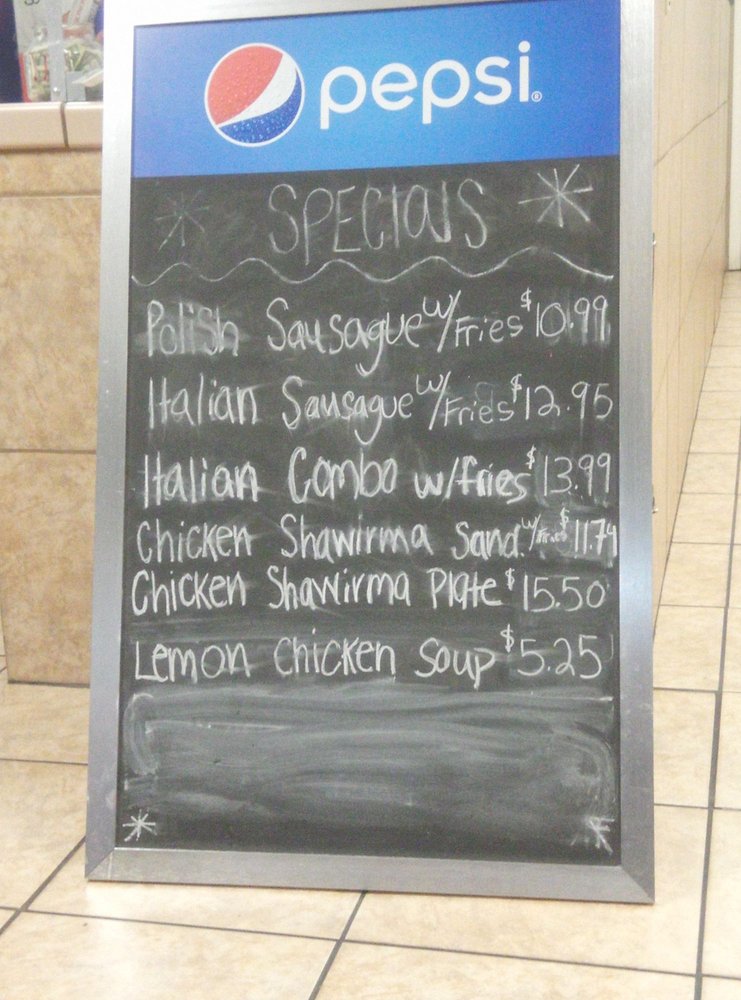 pepsi®
SPECIALS
Polish Sausague w/Fries $10.99
Italian Sausague w/Fries $12.95
Italian Combo w/fries $13.99
Chicken Shawirma Sand. w/fries $11.74
Chicken Shawirma Plate $15.50
Lemon chicken soup $5.25